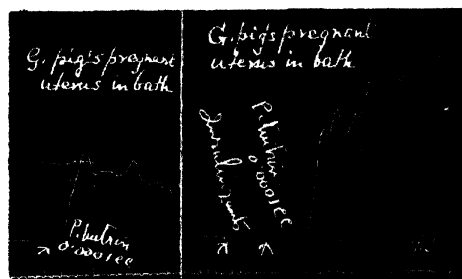 G. pig's pregnant
uterus in bath
Pitutrin
0.0001 cc
G. pig's pregnant
uterus in bath
Insulin
Pitutrin
0.0001 cc